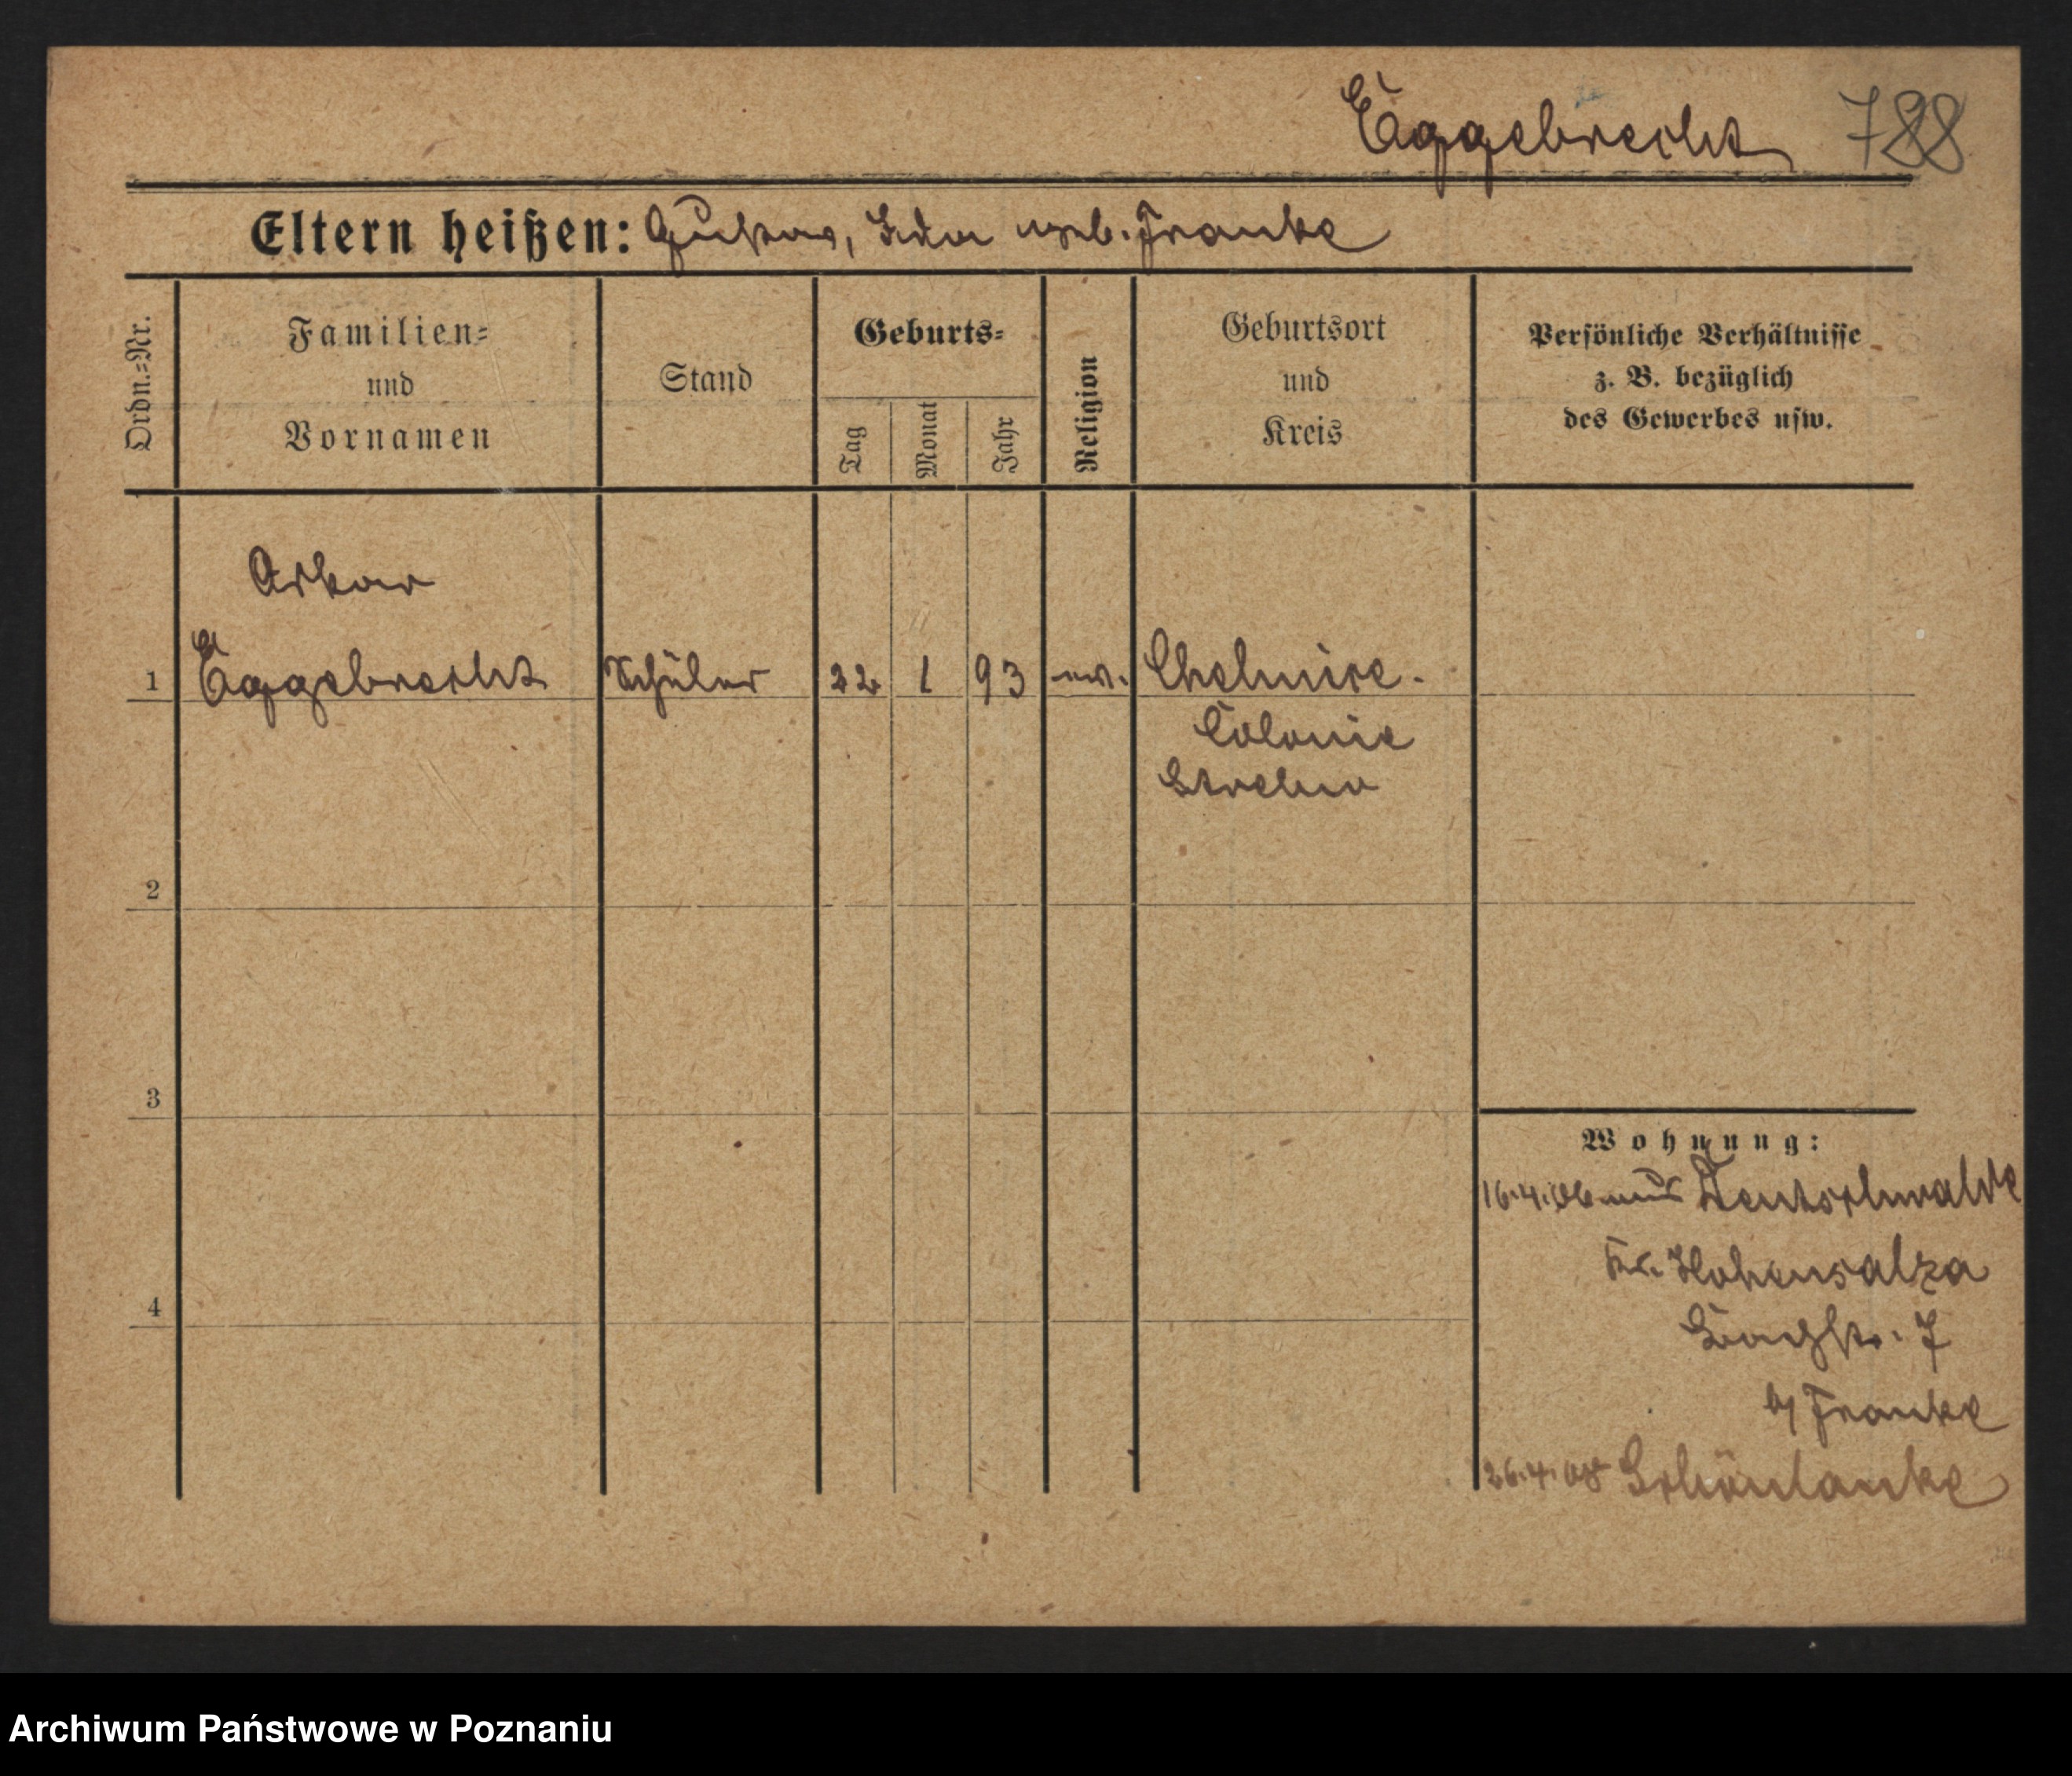 Eggebrecht 788
Eltern heißen: Gustav, Ida geb. Franke
Ordn.=Nr.
Familien=
und
Vornamen
Stand
Geburts=
Tag
Monat
Jahr
Religion
Geburtsort
und
Kreis
Persönliche Verhältnisse
z. B. bezüglich
des Gewerbes usw.
Oskar
1 Eggebrecht Schüler 22 1 93 ev. Chelmice.
Colonie
Strelno
2
3
4
Wohnung:
16.4.06 aus Deutschwalde
Kr. Hohensalza
7
b/ Franke
26.4.08 Schönlanke
Archiwum Państwowe w Poznaniu